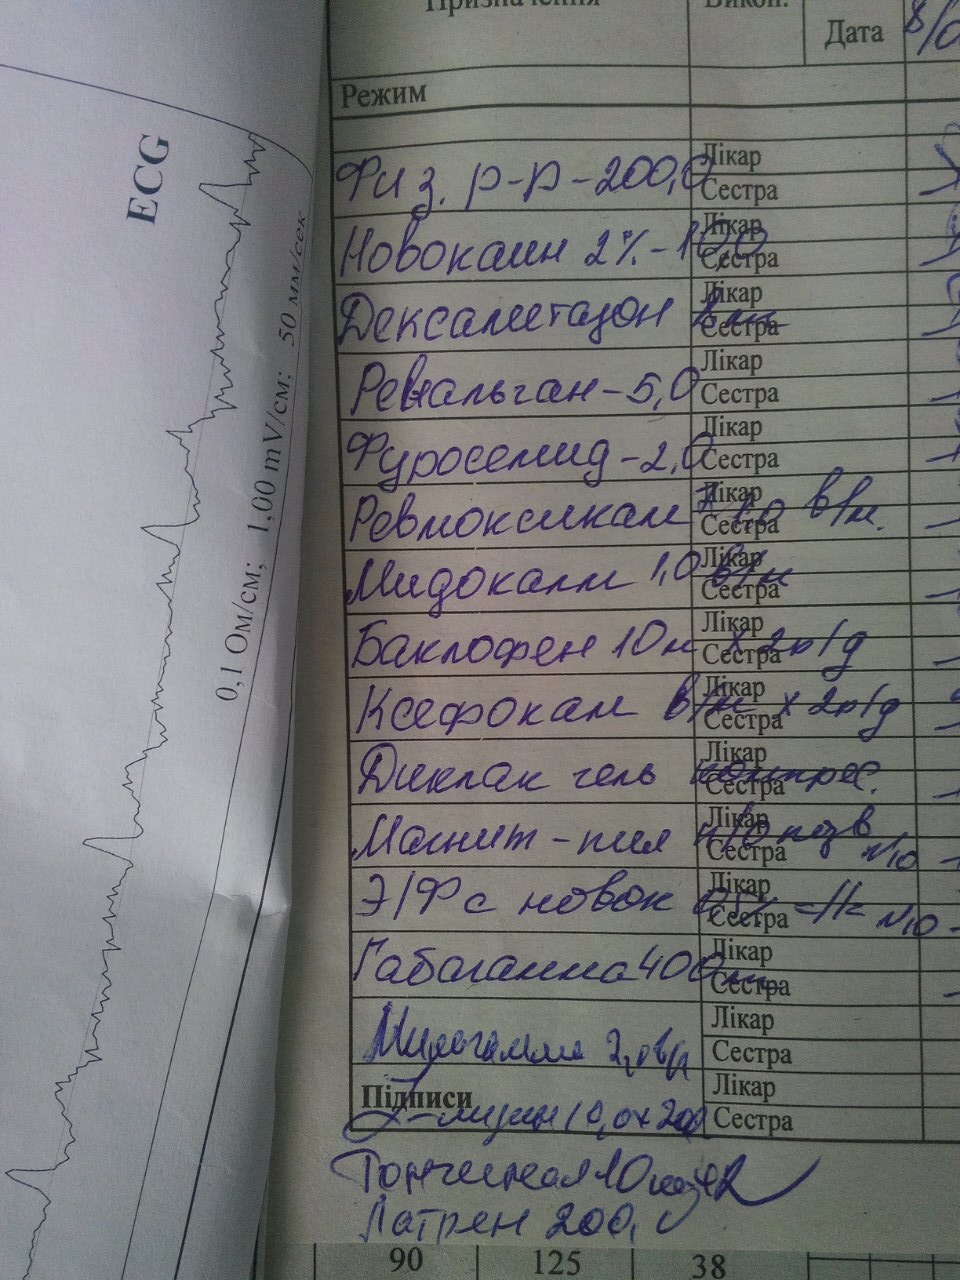 Призначення Викон. Дата 8/0
Режим
Физ. р-р-200,0 Лікар
Сестра
Новокаин 2%-10,0 Лікар
Сестра
Дексаметазон Лікар
Сестра
Ревмалган-5,0 Лікар
Сестра
Фуросемид-2,0 Лікар
Сестра
Ревмоксикам в/м. Лікар
Сестра
Мидокалм 1,0 в/м Лікар
Сестра
Баклофен 10м х 2р/д Лікар
Сестра
Ксефокам в/м х 2р/д Лікар
Сестра
Диклак гель Лікар
Сестра
Магнит - N10 Лікар
Сестра
Э/Ф с новок N10 Лікар
Сестра
Габагамма 400 Лікар
Сестра
Мильгамма 2,0 в/м Лікар
Сестра
Підписи Лікар
L-лизин 10,0х200 Сестра
10
Латрен 200,0
90 125 38
ECG
0,1 Ом/см; 1,00 mV/см; 50 мм/сек